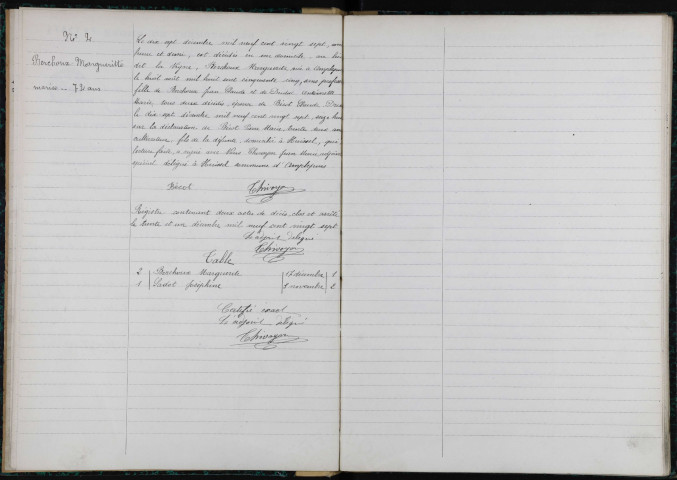 N° 2
Berchoux Marguerite
mariée — 72 ans
Le dix sept décembre mil neuf cent vingt sept, onze
heure et demie, est décédée en son domicile, au lieu
dit La Vigne, Berchoux Marguerite née à Amplepuis
le huit août mil huit cent cinquante cinq, sans profession
fille de Berchoux Jean Claude et de
Marie, tous deux décédés, épouse de Bécot Claude
le dix sept décembre mil neuf cent vingt sept, seize heures
sur la déclaration de Bécot Marie, trente deux ans
cultivateur, fils de la défunte, domicilié à qui
lecture faite a signé avec Nous Thivoyon adjoint
spécial délégué à commune d'Amplepuis
Bécot Thivoyon
Registre contenant deux actes de décès, clos et arrêté
le trente et un décembre mil neuf cent vingt sept
L'adjoint délégué
Thivoyon
Table
2 Berchoux Marguerite 17 décembre 2
1 Joséphine novembre 2
Certifié exact
L'adjoint délégué
Thivoyon